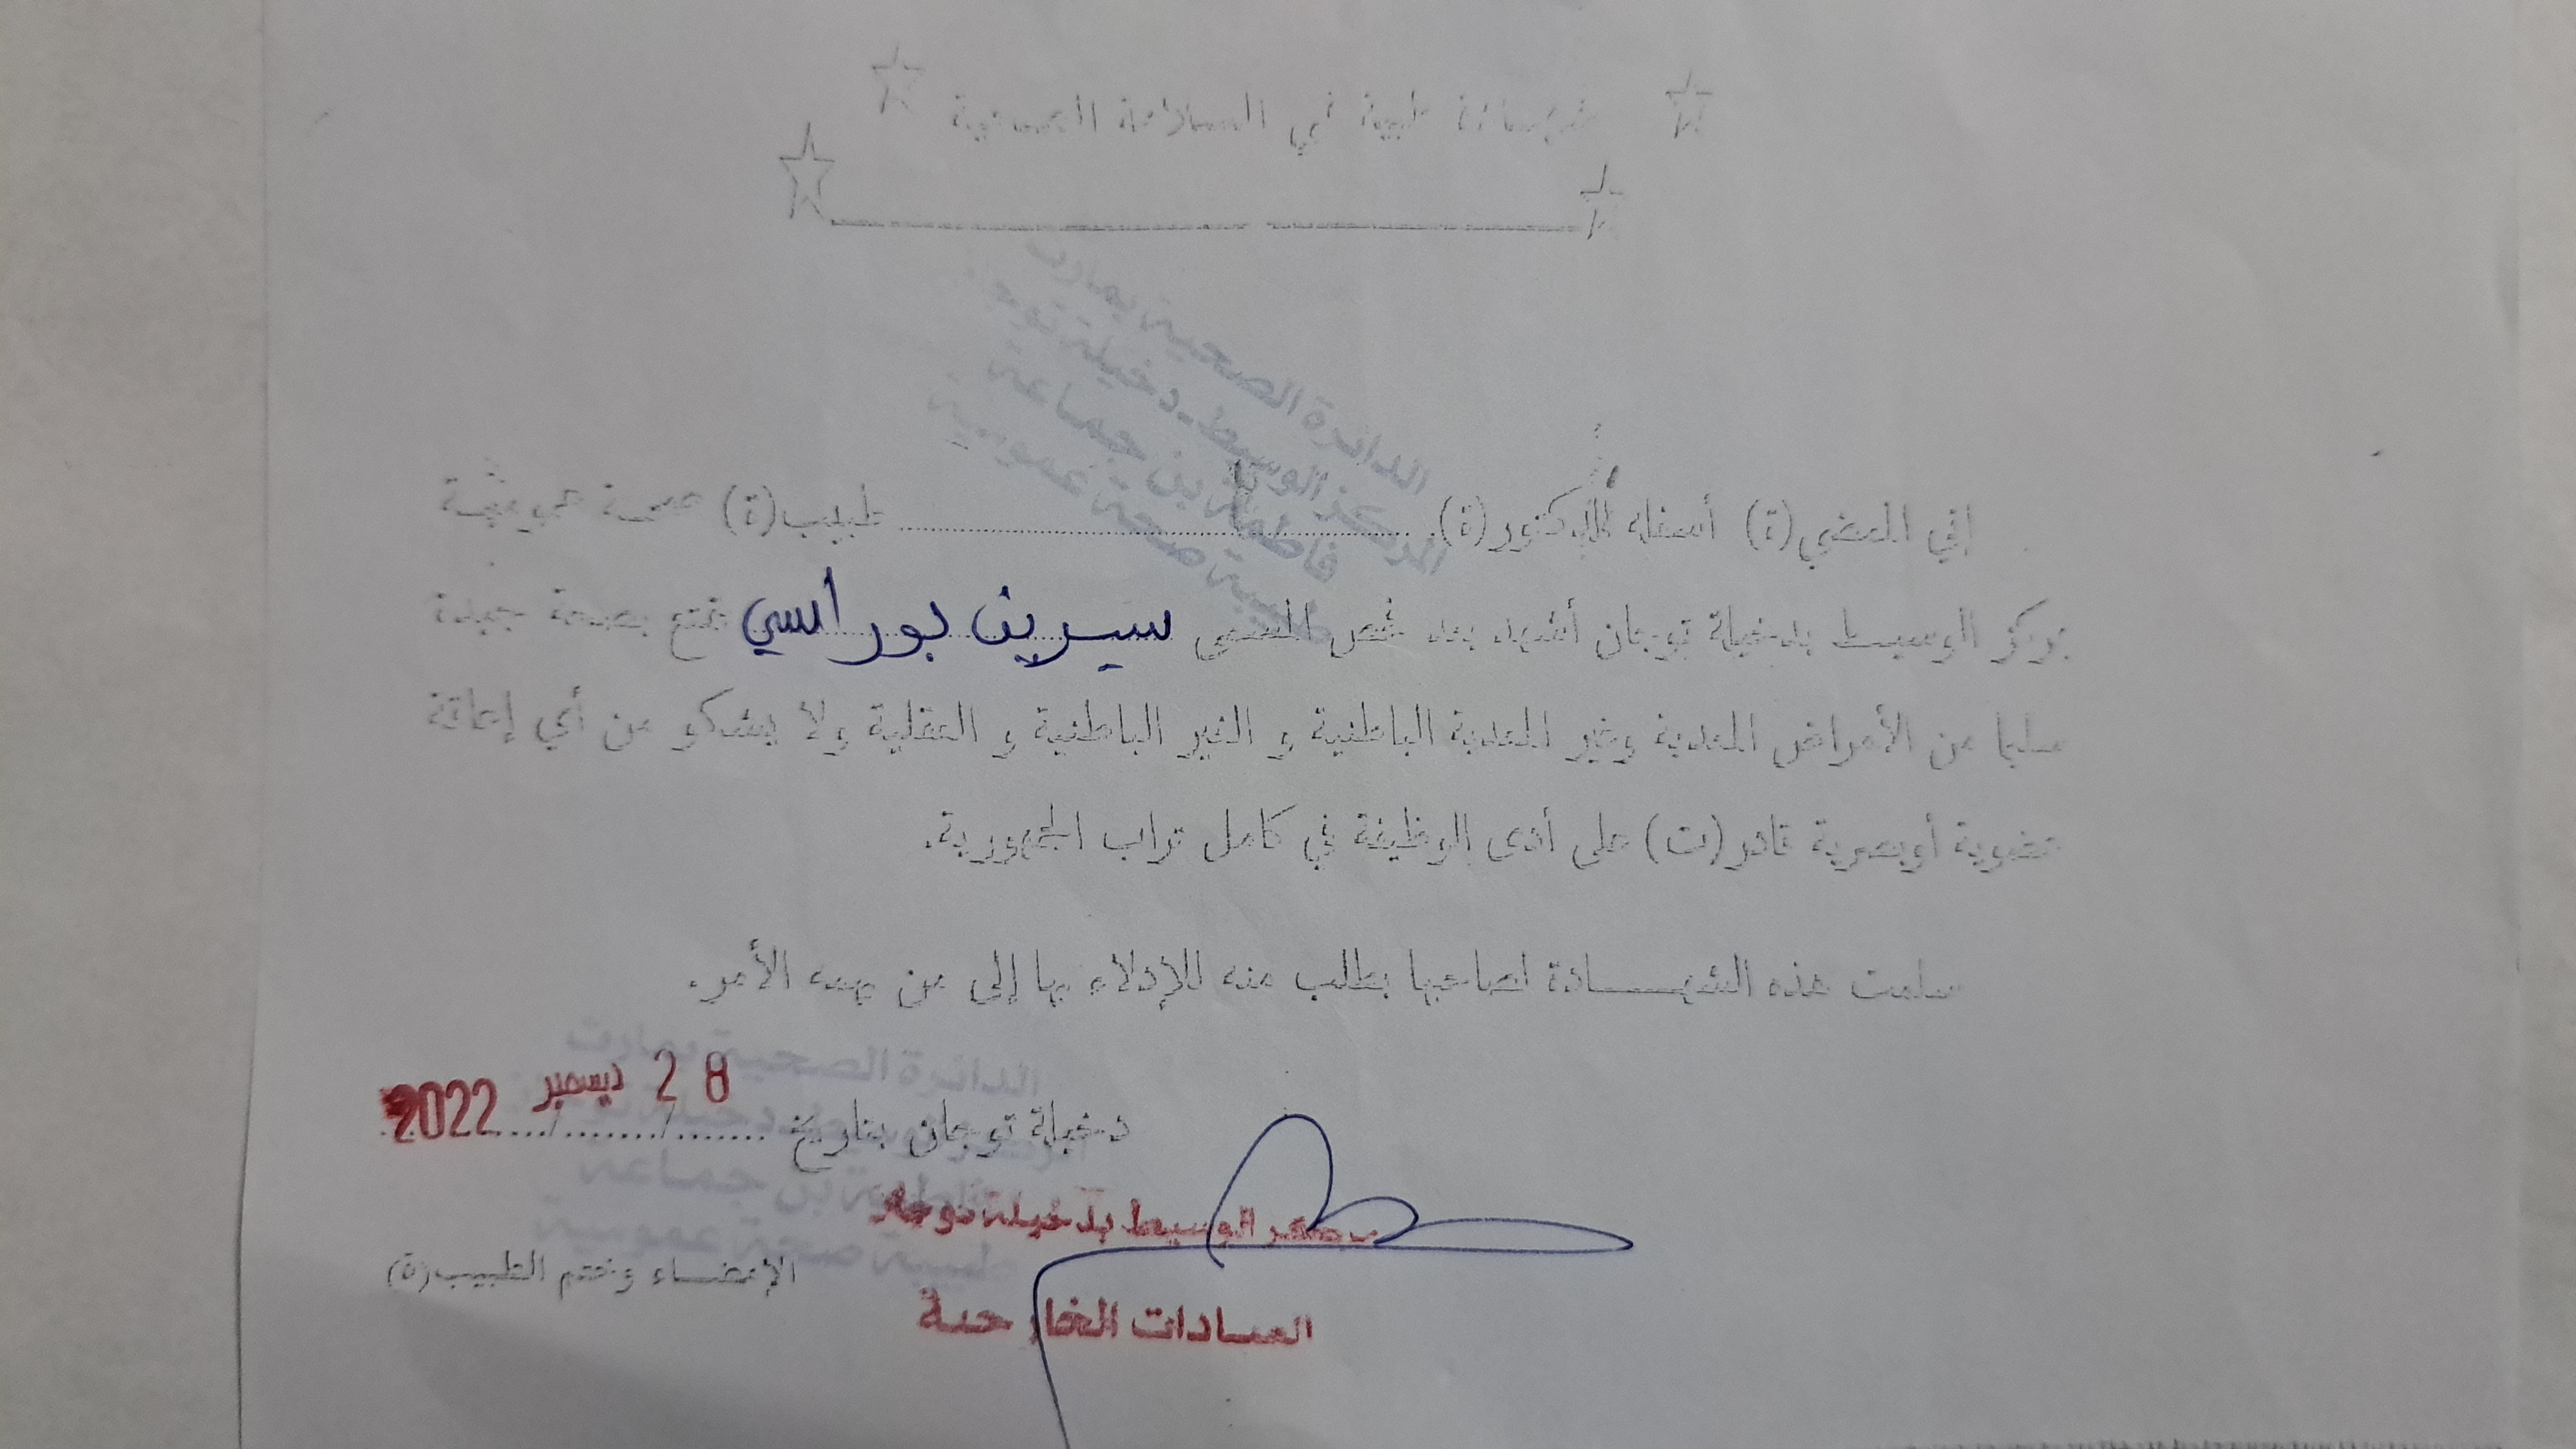 شهادة طبية في السلامة الصحية
الدائرة الصحية بمارث
المركز الوسيط - دخيلة توجان
فاطمة بن جماعة
طبيبة صحة عمومية
إني الممضي(ة) أسفله الدكتور(ة) طبيب(ة) صحة عمومية
بمركز الوسيط بدخيلة توجان أشهد بعد فحص المسمى سيرين بوراسي تمتع بصحة جيدة
سليما من الأمراض المعدية وغير المعدية الباطنية و الغير الباطنية و العقلية ولا يشكو من أي إعاقة
عضوية أوبصرية قادر(ت) على أدى الوظيفة في كامل تراب الجمهورية.
سلمت هذه الشهـــــادة لصاحبها بطلب منه للإدلاء بها إلى من يهمه الأمر.
الدائرة الصحية بمارث
دخيلة توجان بتاريخ 28 ديسمبر 2022
بن جماعة
طبيبة صحة عمومية
الوسيط بدخيلة توجان
الإمضــاء وختم الطبيب(ة)
العيادات الخارجية